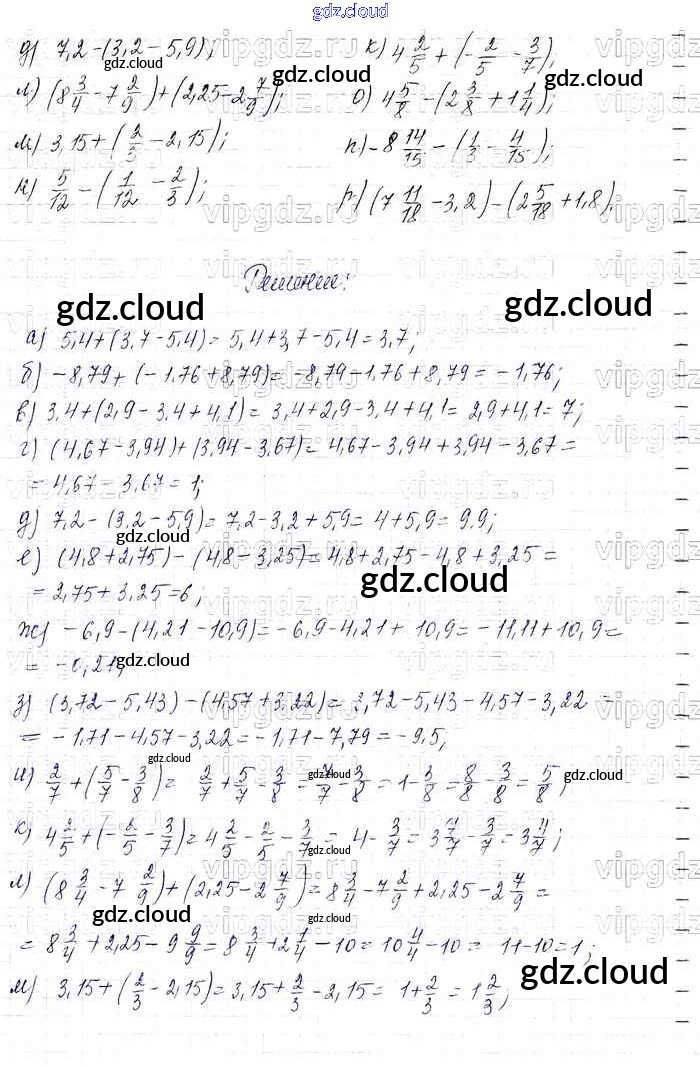 gdz.cloud
д) 7,2-(3,2-5,9); к) 4 2/5 + (-2/5 - 3/7);
л) (8 3/4 - 7 2/9) + (2,25-2 7/9); о) 4 5/8 - (2 3/8 + 1 1/4);
м) 3,15 + (2/3 - 2,15); п) -8 14/15 - (1/3 - 4/15);
н) 5/12 - (1/12 - 2/3); р) (7 11/18 - 3,2) - (2 5/18 + 1,8).
Решение:
gdz.cloud gdz.cloud
а) 5,4+(3,7-5,4)= 5,4+3,7-5,4=3,7;
б) -8,79+(-1,76+8,79)= -8,79-1,76+8,79= -1,76;
в) 3,4+(2,9-3,4+4,1)= 3,4+2,9-3,4+4,1= 2,9+4,1= 7;
г) (4,67-3,94)+(3,94-3,67)= 4,67-3,94+3,94-3,67=
= 4,67-3,67= 1;
д) 7,2-(3,2-5,9)= 7,2-3,2+5,9= 4+5,9= 9,9;
gdz.cloud
е) (4,8+2,75)-(4,8-3,25)= 4,8+2,75-4,8+3,25=
= 2,75+3,25=6;
gdz.cloud
ж) -6,9-(4,21-10,9)= -6,9-4,21+10,9= -11,11+10,9=
= -0,21;
gdz.cloud
з) (3,72-5,43)-(4,57+3,22)= 3,72-5,43-4,57-3,22=
= -1,71-4,57-3,22= -1,71-7,79= -9,5;
gdz.cloud
и) 2/7 + (5/7 - 3/8)= 2/7 + 5/7 - 3/8 = 7/7 - 3/8 = 1 - 3/8 = 8/8 - 3/8 = 5/8;
к) 4 2/5 + (-2/5 - 3/7)= 4 2/5 - 2/5 - 3/7 = 4 - 3/7 = 3 7/7 - 3/7 = 3 4/7;
л) (8 3/4 - 7 2/9) + (2,25-2 7/9)= 8 3/4 - 7 2/9 + 2,25-2 7/9 =
= 8 3/4 + 2,25-9 9/9 = 8 3/4 + 2 1/4 - 10= 10 4/4 - 10= 11-10= 1;
м) 3,15+(2/3 - 2,15)= 3,15+ 2/3 - 2,15= 1+ 2/3 = 1 2/3;
gdz.cloud